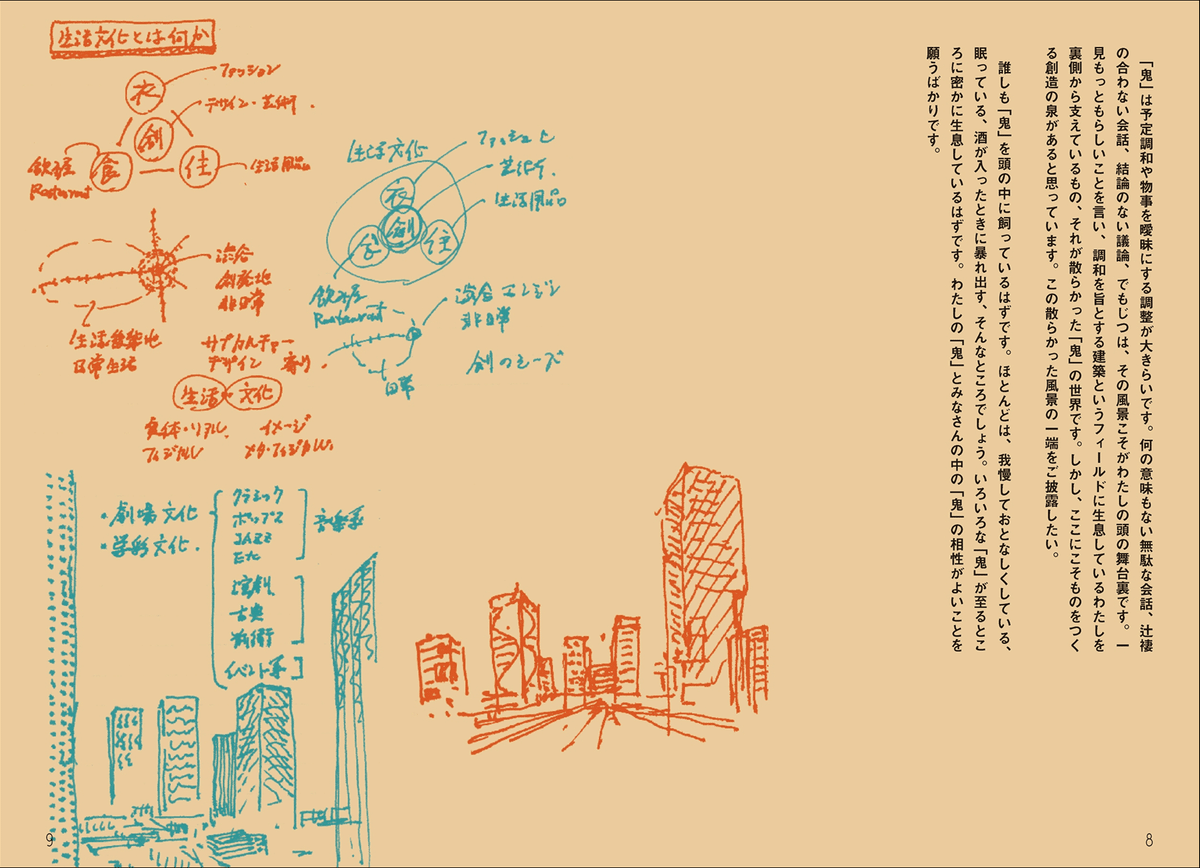 「鬼」は予定調和や物事を曖昧にする調整が大きらいです。何の意味もない無駄な会話、辻褄
の合わない会話、結論のない議論、でもじつは、その風景こそがわたしの頭の舞台裏です。一
見もっともらしいことを言い、調和を旨とする建築というフィールドに生息しているわたしを
裏側から支えているもの、それが散らかった「鬼」の世界です。しかし、ここにこそものをつく
る創造の泉があると思っています。この散らかった風景の一端をご披露したい。
誰しも「鬼」を頭の中に飼っているはずです。ほとんどは、我慢しておとなしくしている、
眠っている、酒が入ったときに暴れ出す、そんなところでしょう。いろいろな「鬼」が至るとこ
ろに密かに生息しているはずです。わたしの「鬼」とみなさんの中の「鬼」の相性がよいことを
願うばかりです。
8
生活文化とは何か
衣
ファッション
デザイン・芸術
創
食
住
飲屋
Restaurant
生活用品
創発地
非日常
日常生活
サブカルチャー
デザイン 寄り
生活
文化
実体・リアル
フィジカル
イメージ
メタ・フィジカル
生活文化
衣
創
食
住
芸術
生活用品
飲屋
Restaurant
融合エンジン
非日常
日常
創のシーズ
・劇場文化
クラシック
ポップス
JAZZ
Etc
音楽系
演劇
古典
イベント系
9